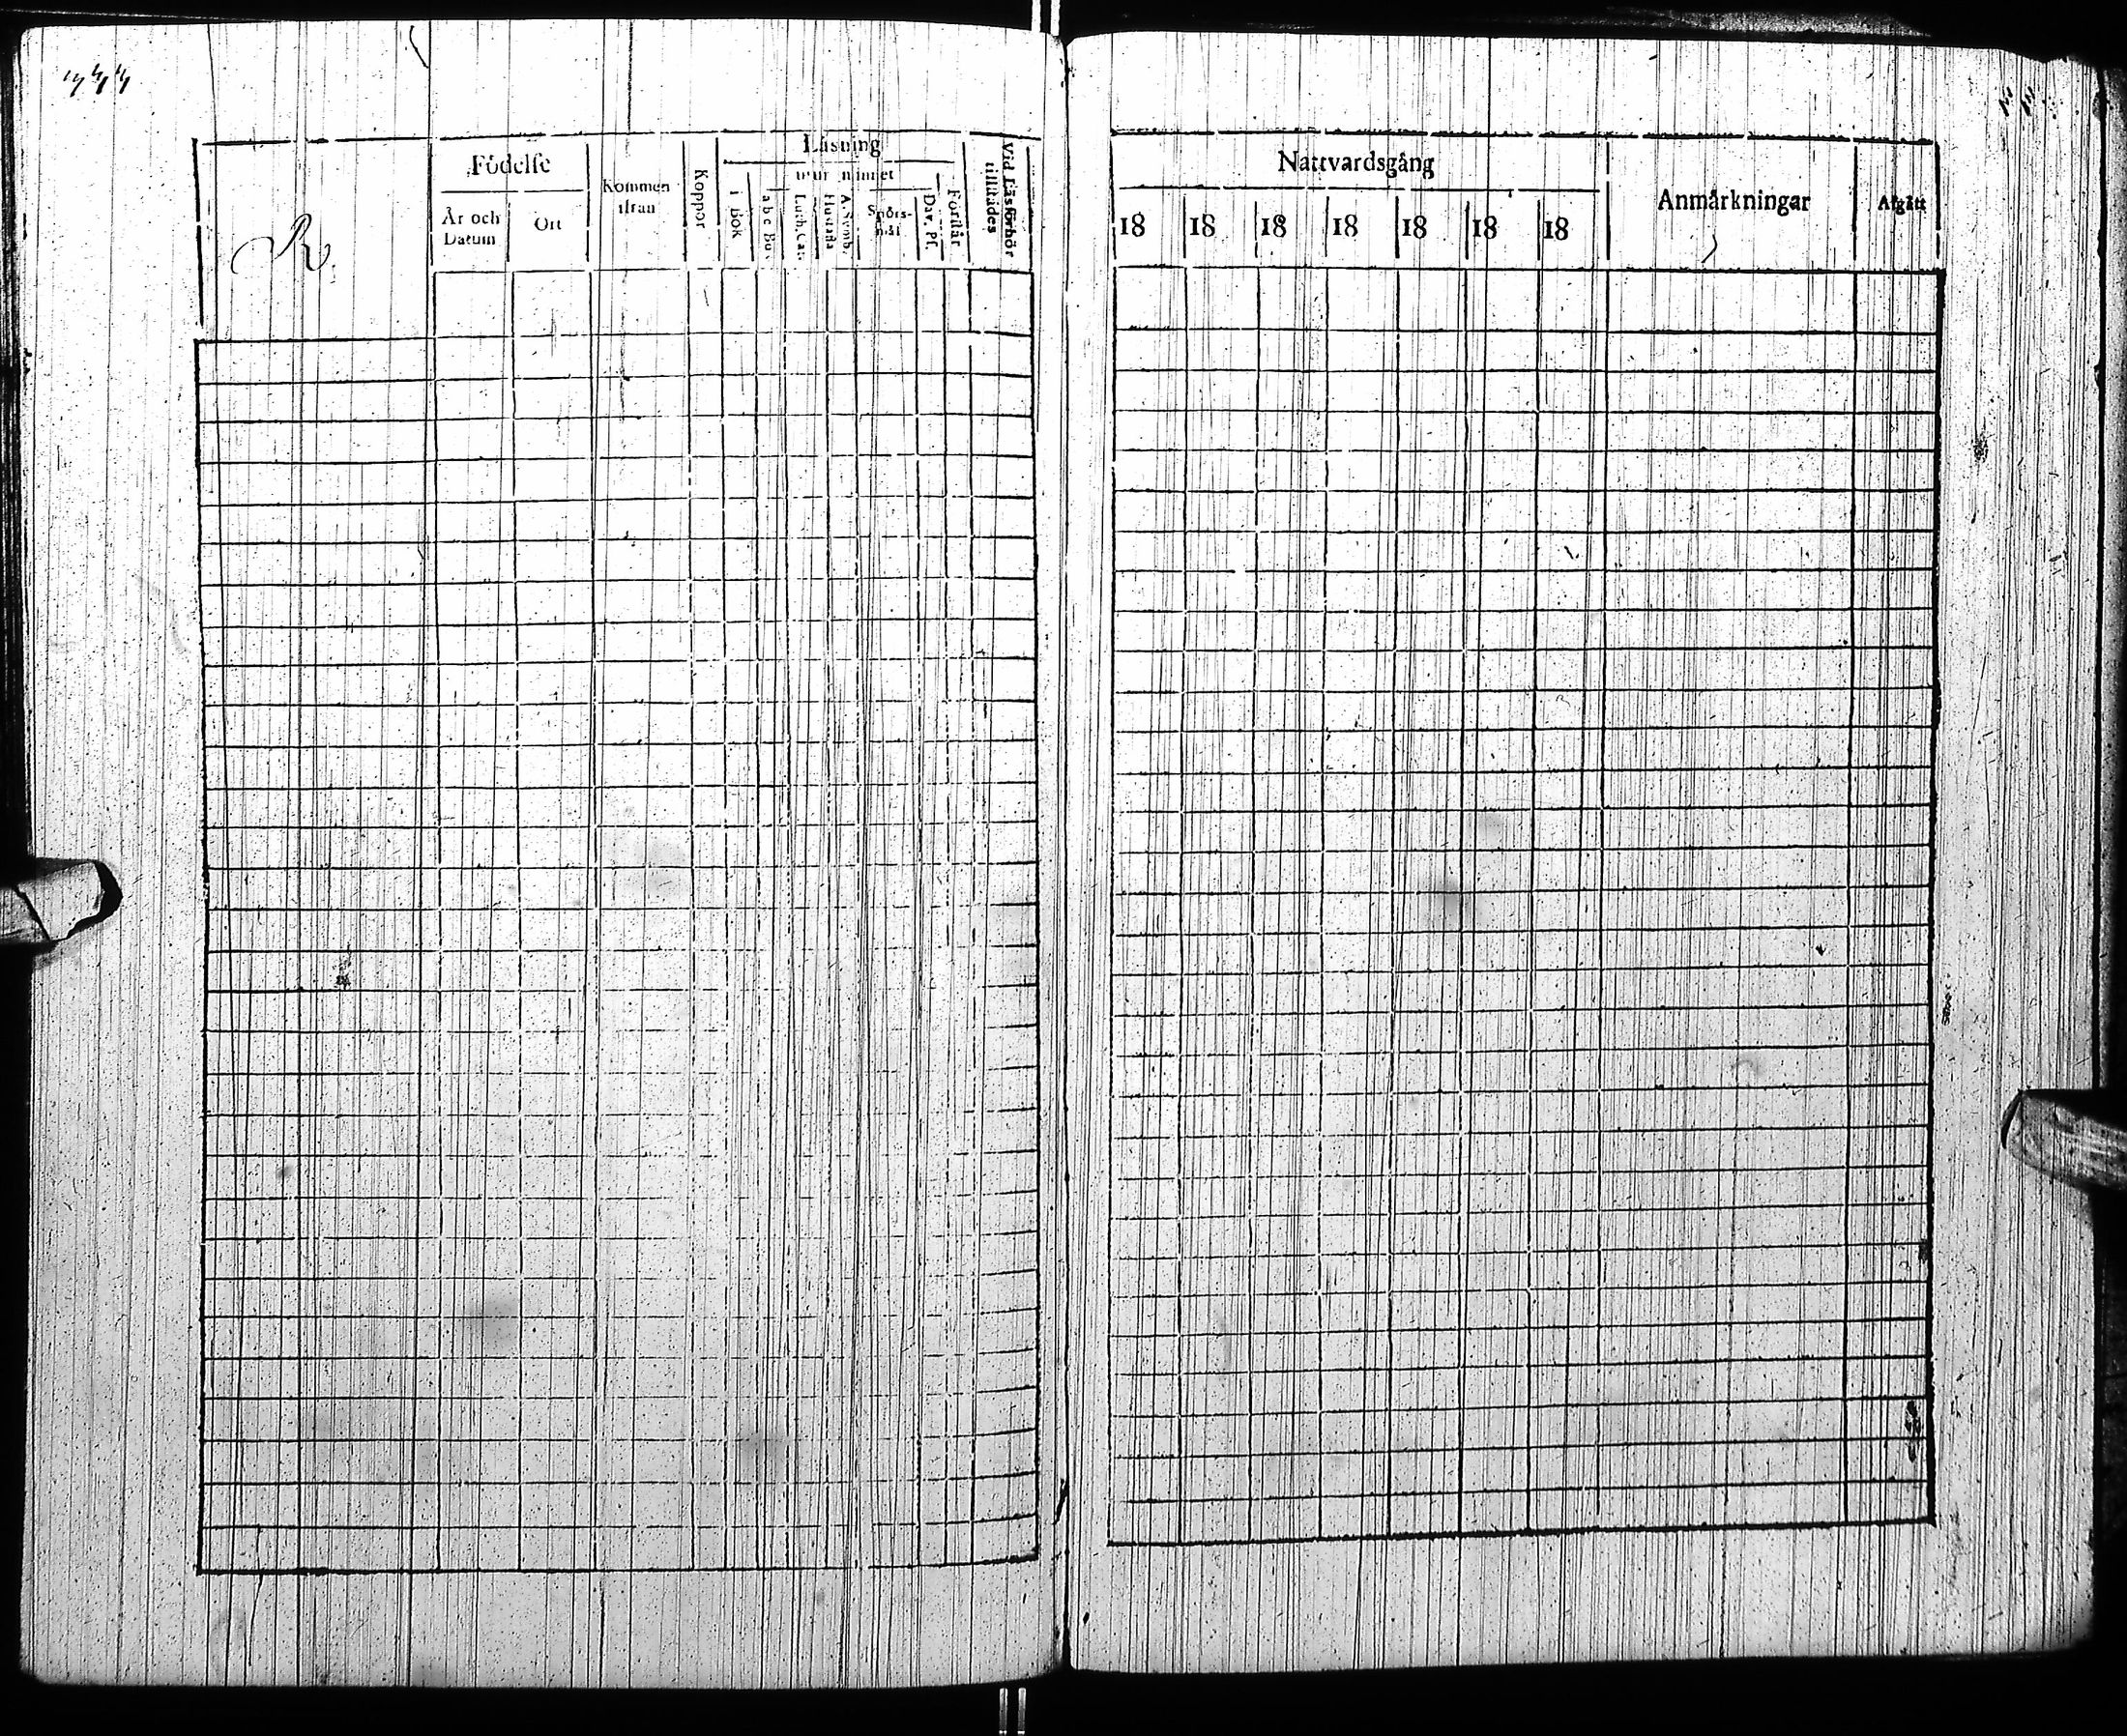 R.
Födelse
År och Datum
Ort
Kommen ifrån
Koppor
Läsning
utur minnet
i Bok
a b c Bo
Luth. Cat.
Hustafla
A. Symb.
Spörs-mål
Dav. Ps.
Förstår
Vid Läsförhör tillstådes
Nattvardsgång
18 18 18 18 18 18 18
Anmärkningar
Afgått